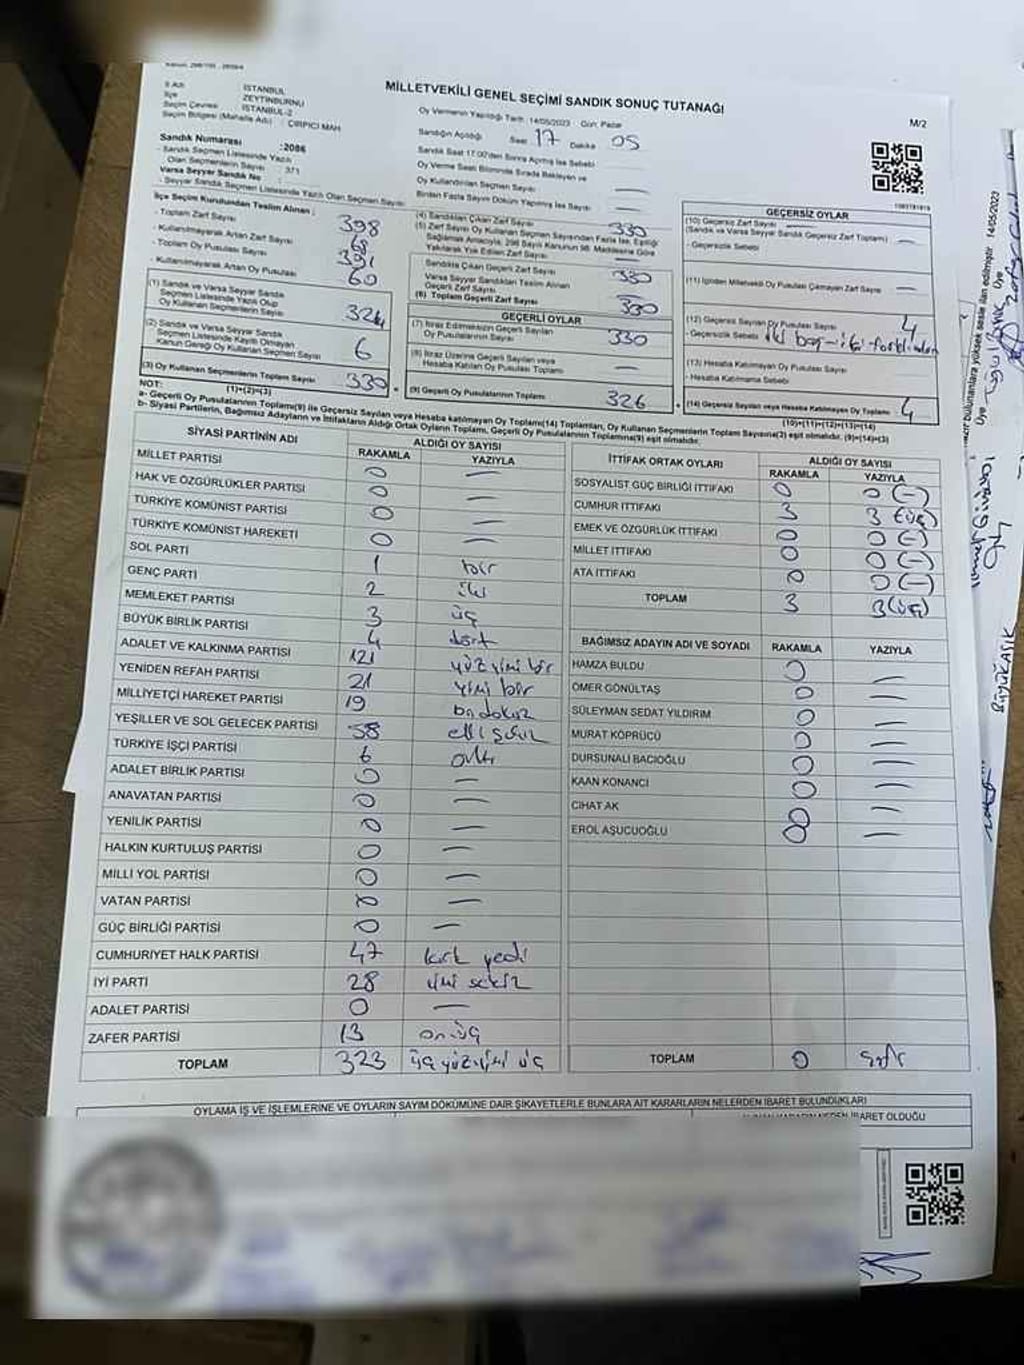 İl Adı : İSTANBUL
İlçe : ZEYTİNBURNU
Seçim Çevresi : İSTANBUL-2
Seçim Bölgesi (Mahalle Adı) : ÇIRPICI MAH
MİLLETVEKİLİ GENEL SEÇİMİ SANDIK SONUÇ TUTANAĞI
M/2
Oy Vermenin Yapıldığı Tarih : 14/05/2023 Gün: Pazar
Sandığın Açıldığı Saat 17 Dakika 05
Sandık Saat 17:00'den Sonra Açılmış İse Sebebi
Oy Verme Saati Bitiminde Sırada Bekleyen ve
Oy Kullandırılan Seçmen Sayısı —
Birden Fazla Sayım Döküm Yapılmış İse Sayısı —
Sandık Numarası : 2086
- Sandık Seçmen Listesinde Yazılı
Olan Seçmenlerin Sayısı : 371
Varsa Seyyar Sandık No
- Seyyar Sandık Seçmen Listesinde Yazılı Olan Seçmen Sayısı
İlçe Seçim Kurulundan Teslim Alınan :
- Toplam Zarf Sayısı 398
- Kullanılmayarak Artan Zarf Sayısı 68
- Toplam Oy Pusulası Sayısı 391
- Kullanılmayarak Artan Oy Pusulası 60
(1) Sandık ve Varsa Seyyar Sandık
Seçmen Listesinde Yazılı Olup
Oy Kullanan Seçmenlerin Sayısı 324
(2) Sandık ve Varsa Seyyar Sandık
Seçmen Listesinde Kayıtlı Olmayan
Kanun Gereği Oy Kullanan Seçmen Sayısı 6
(3) Oy Kullanan Seçmenlerin Toplam Sayısı 330
(1)+(2)=(3)
(4) Sandıktan Çıkan Zarf Sayısı 330
(5) Zarf Sayısı Oy Kullanan Seçmen Sayısından Fazla İse, Eşitliği
Sağlamak Amacıyla, 298 Sayılı Kanunun 98. Maddesine Göre
Yakılarak Yok Edilen Zarf Sayısı —
Sandıkta Çıkan Geçerli Zarf Sayısı 330
Varsa Seyyar Sandıktan Teslim Alınan
Geçerli Zarf Sayısı
(6) Toplam Geçerli Zarf Sayısı 330
GEÇERLİ OYLAR
(7) İtiraz Edilmeksizin Geçerli Sayılan
Oy Pusulalarının Sayısı 330
(8) İtiraz Üzerine Geçerli Sayılan veya
Hesaba Katılan Oy Pusulası Toplamı —
(9) Geçerli Oy Pusulalarının Toplamı 326
GEÇERSİZ OYLAR
(10) Geçersiz Zarf Sayısı
(Sandık ve Varsa Seyyar Sandık Geçersiz Zarf Toplamı) —
- Geçersizlik Sebebi
(11) İçinden Milletvekili Oy Pusulası Çıkmayan Zarf Sayısı —
(12) Geçersiz Sayılan Oy Pusulası Sayısı 4
- Geçersizlik Sebebi
(13) Hesaba Katılmayan Oy Pusulası Sayısı
- Hesaba Katılmama Sebebi
(14) Geçersiz Sayılan veya Hesaba Katılmayan Oy Toplamı 4
(10)+(11)+(12)+(13)=(14)
NOT:
a- Geçerli Oy Pusulalarının Toplamı(9) ile Geçersiz Sayılan veya Hesaba katılmayan Oy Toplamı(14) Toplamları, Oy Kullanan Seçmenlerin Toplam Sayısına(3) eşit olmalıdır. (9)+(14)=(3)
b- Siyasi Partilerin, Bağımsız Adayların ve İttifakların Aldığı Ortak Oyların Toplamı, Geçerli Oy Pusulalarının Toplamına(9) eşit olmalıdır.
SİYASİ PARTİNİN ADI ALDIĞI OY SAYISI
RAKAMLA YAZIYLA
MİLLET PARTİSİ 0 —
HAK VE ÖZGÜRLÜKLER PARTİSİ 0 —
TÜRKİYE KOMÜNİST PARTİSİ 0 —
TÜRKİYE KOMÜNİST HAREKETİ 0 —
SOL PARTİ 1 bir
GENÇ PARTİ 2 iki
MEMLEKET PARTİSİ 3 üç
BÜYÜK BİRLİK PARTİSİ 4 dört
ADALET VE KALKINMA PARTİSİ 121 yüz yirmi bir
YENİDEN REFAH PARTİSİ 21 yirmi bir
MİLLİYETÇİ HAREKET PARTİSİ 19 on dokuz
YEŞİLLER VE SOL GELECEK PARTİSİ 58 elli sekiz
TÜRKİYE İŞÇİ PARTİSİ 6 altı
ADALET BİRLİK PARTİSİ 0 —
ANAVATAN PARTİSİ 0 —
YENİLİK PARTİSİ 0 —
HALKIN KURTULUŞ PARTİSİ 0 —
MİLLİ YOL PARTİSİ 0 —
VATAN PARTİSİ 0 —
GÜÇ BİRLİĞİ PARTİSİ 0 —
CUMHURİYET HALK PARTİSİ 47 kırk yedi
İYİ PARTİ 28 yirmi sekiz
ADALET PARTİSİ 0 —
ZAFER PARTİSİ 13 on üç
TOPLAM 323 üç yüz yirmi üç
İTTİFAK ORTAK OYLARI ALDIĞI OY SAYISI
RAKAMLA YAZIYLA
SOSYALİST GÜÇ BİRLİĞİ İTTİFAKI 0 0 (—)
CUMHUR İTTİFAKI 3 3 (üç)
EMEK VE ÖZGÜRLÜK İTTİFAKI 0 0 (—)
MİLLET İTTİFAKI 0 0 (—)
ATA İTTİFAKI 0 0 (—)
TOPLAM 3 3 (üç)
BAĞIMSIZ ADAYIN ADI VE SOYADI RAKAMLA YAZIYLA
HAMZA BULDU 0 —
ÖMER GÖNÜLTAŞ 0 —
SÜLEYMAN SEDAT YILDIRIM 0 —
MURAT KÖPRÜCÜ 0 —
DURSUNALİ BACIOĞLU 0 —
KAAN KONANCI 0 —
CİHAT AK 0 —
EROL AŞUCUOĞLU 0 —
TOPLAM 0 sıfır
OYLAMA İŞ VE İŞLEMLERİNE VE OYLARIN SAYIM DÖKÜMÜNE DAİR ŞİKAYETLERLE BUNLARA AİT KARARLARIN NELERDEN İBARET BULUNDUKLARI
İBARET OLDUĞU
14/05/2023
Üye
Üye